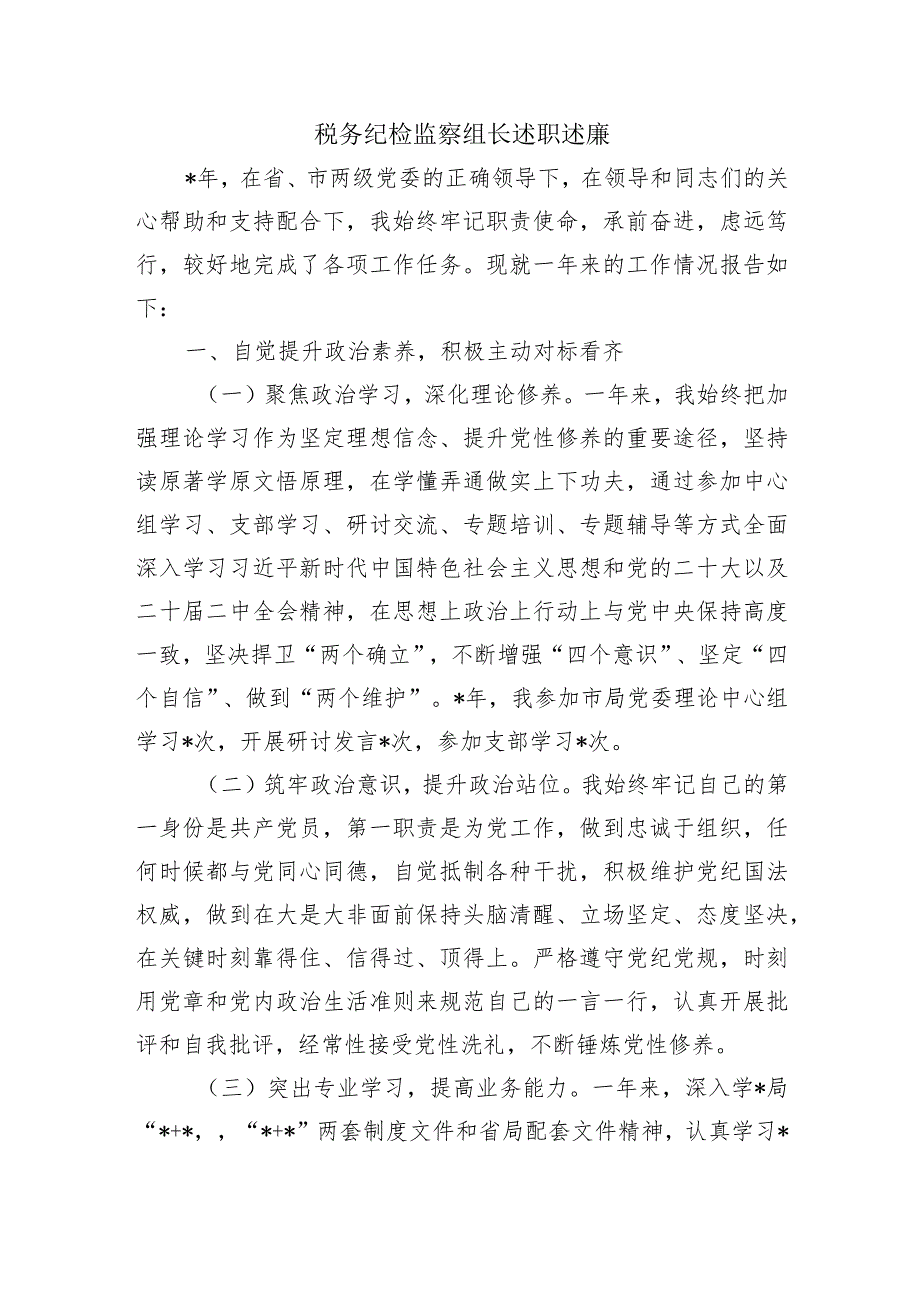 税务纪检监察组长述职述廉
*年，在省、市两级党委的正确领导下，在领导和同志们的关
心帮助和支持配合下，我始终牢记职责使命，承前奋进，虑远笃
行，较好地完成了各项工作任务。现就一年来的工作情况报告如
下：
一、自觉提升政治素养，积极主动对标看齐
（一）聚焦政治学习，深化理论修养。一年来，我始终把加
强理论学习作为坚定理想信念、提升党性修养的重要途径，坚持
读原著学原文悟原理，在学懂弄通做实上下功夫，通过参加中心
组学习、支部学习、研讨交流、专题培训、专题辅导等方式全面
深入学习习近平新时代中国特色社会主义思想和党的二十大以及
二十届二中全会精神，在思想上政治上行动上与党中央保持高度
一致，坚决捍卫“两个确立”，不断增强“四个意识”、坚定“四
个自信”、做到“两个维护”。*年，我参加市局党委理论中心组
学习*次，开展研讨发言*次，参加支部学习*次。
（二）筑牢政治意识，提升政治站位。我始终牢记自己的第
一身份是共产党员，第一职责是为党工作，做到忠诚于组织，任
何时候都与党同心同德，自觉抵制各种干扰，积极维护党纪国法
权威，做到在大是大非面前保持头脑清醒、立场坚定、态度坚决，
在关键时刻靠得住、信得过、顶得上。严格遵守党纪党规，时刻
用党章和党内政治生活准则来规范自己的一言一行，认真开展批
评和自我批评，经常性接受党性洗礼，不断锤炼党性修养。
（三）突出专业学习，提高业务能力。一年来，深入学*局
“*+*，，“*+*”两套制度文件和省局配套文件精神，认真学习*